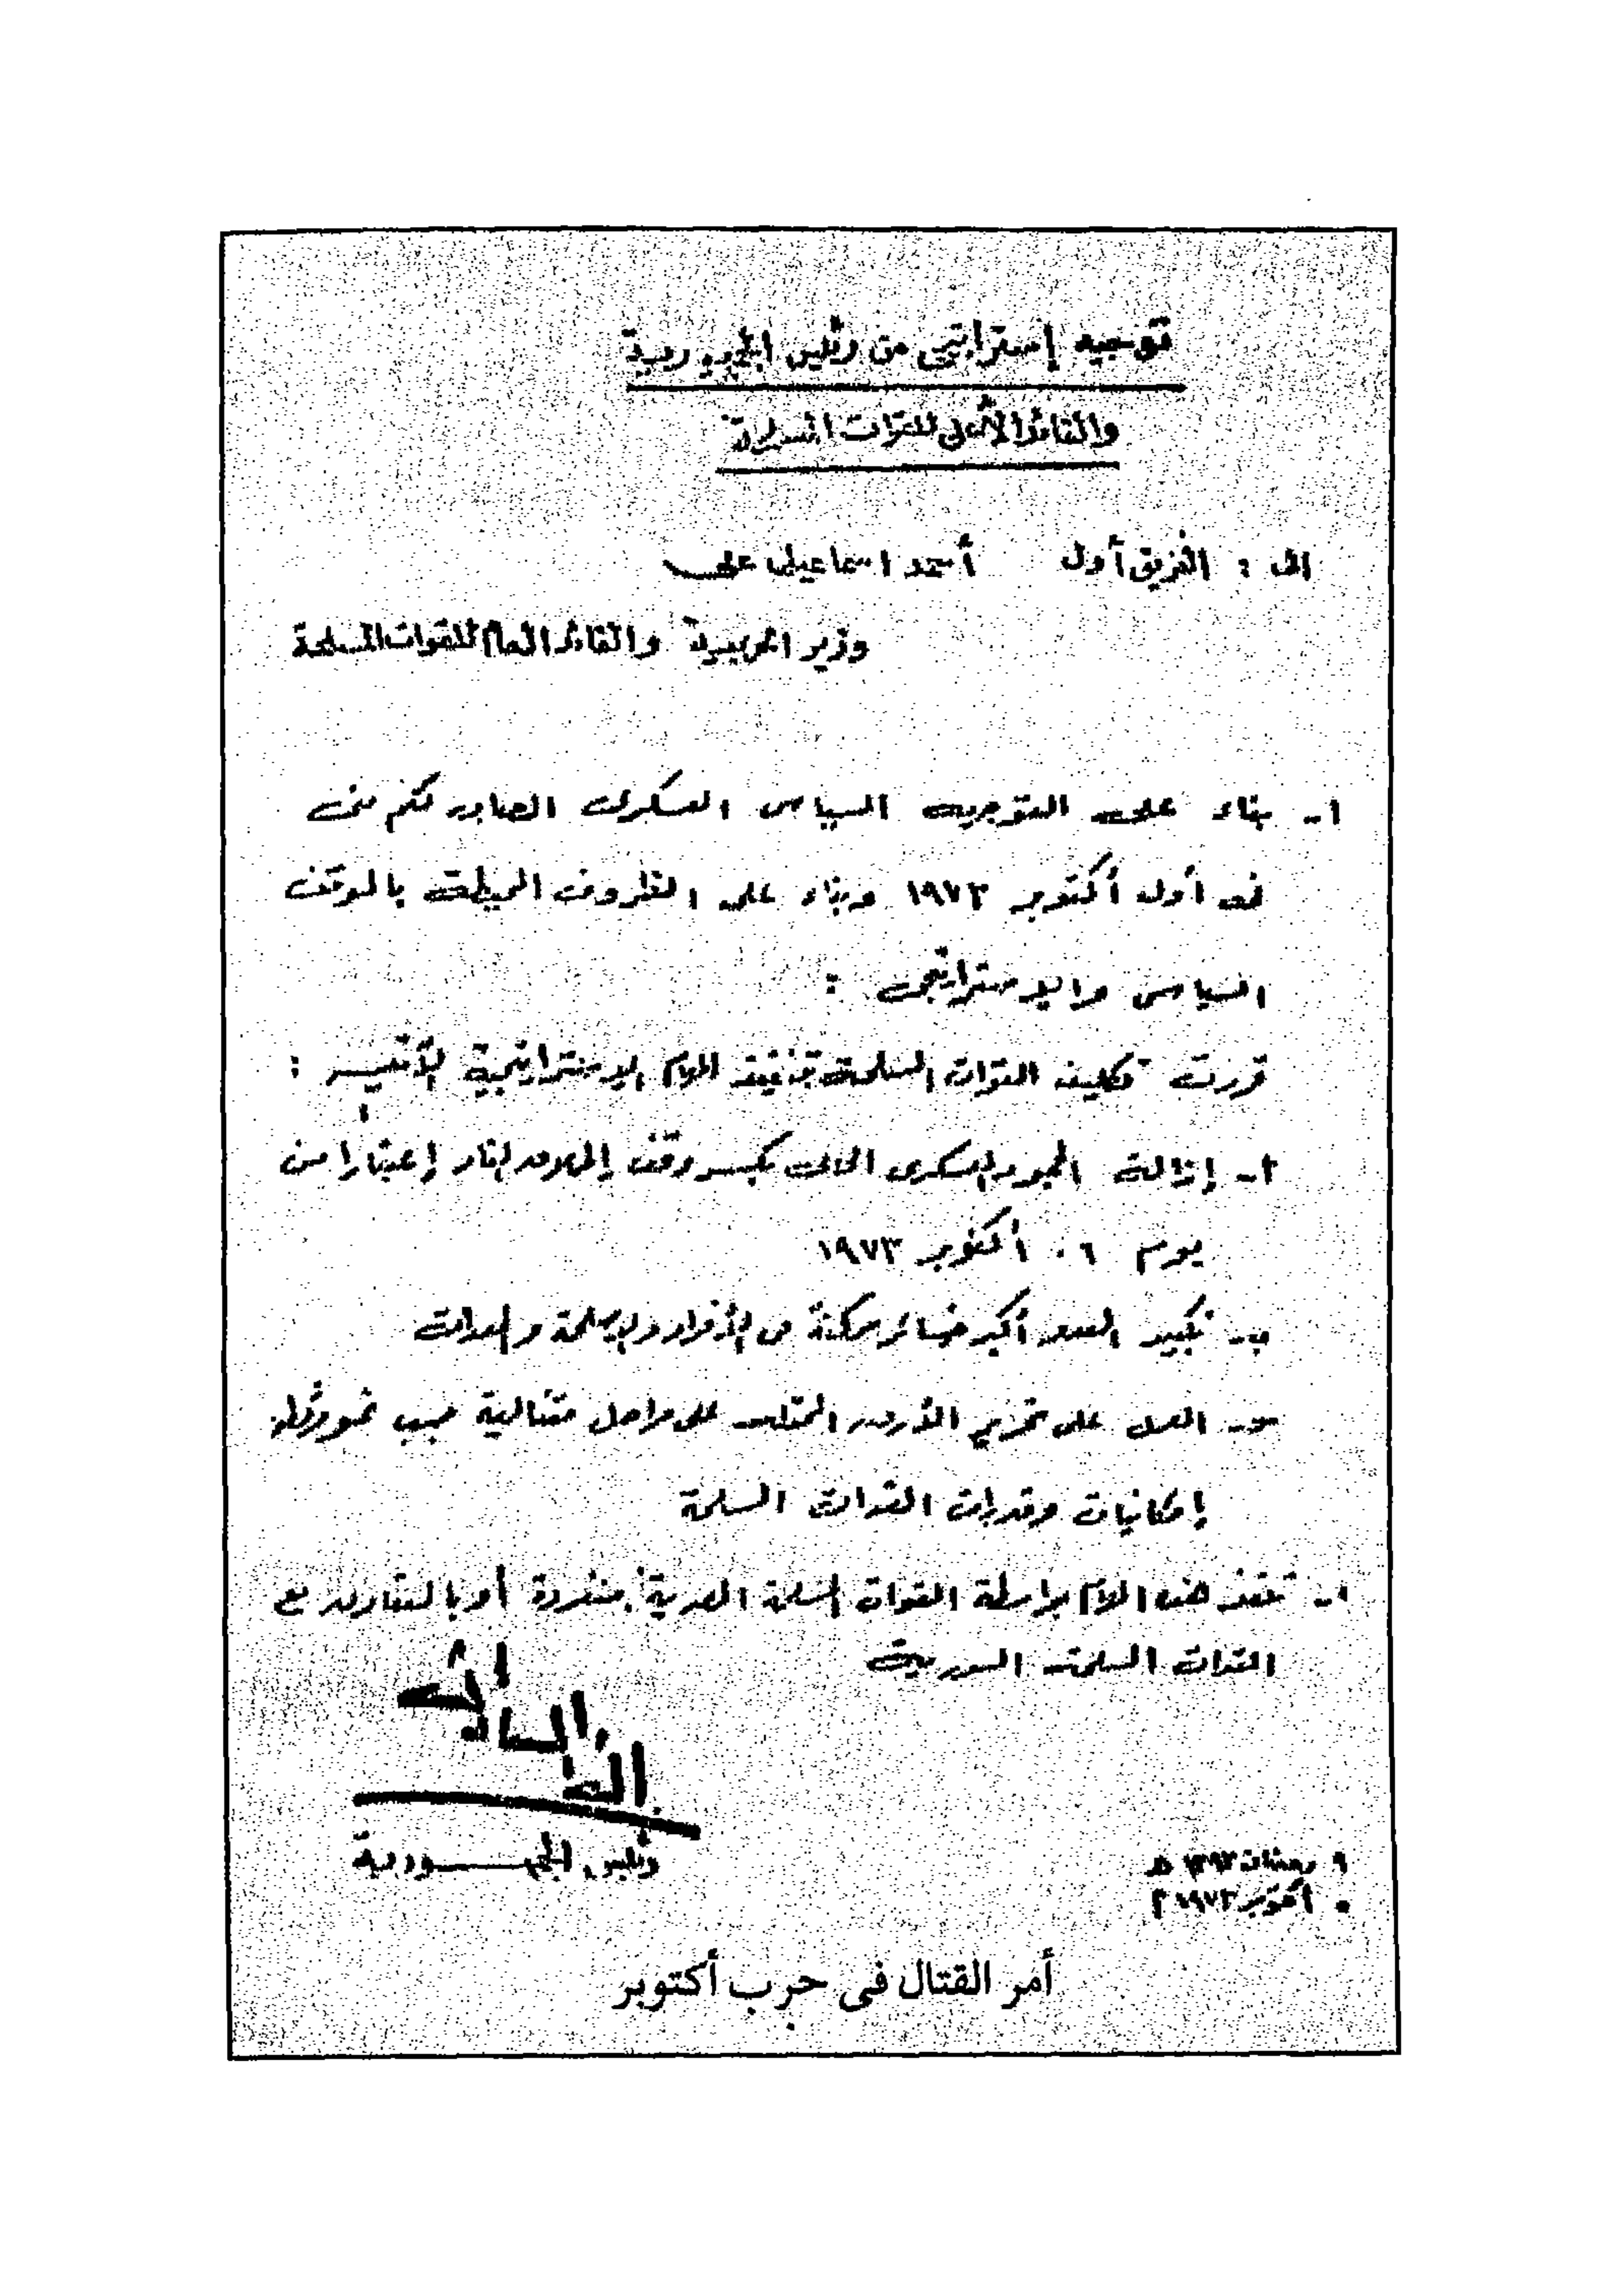 توجيه إستراتيجى من رئيس الجمهورية
والقائد الأعلى للقوات المسلحة
الى : الفريق أول أحمد اسماعيل على
وزير الحربية والقائد العام للقوات المسلحة
١- بناء على التوجيه السياسى العسكرى الصادر لكم منى
فى أول أكتوبر ١٩٧٣ وبناء على الظروف المحيطة بالموقف
السياسى والإستراتيجى :
قررت تكليف القوات المسلحة بتنفيذ المهام الإستراتيجية الآتية :
أ- إزالة الجمود العسكرى الحالى بكسر وقف إطلاق النار إعتبارا من
يوم ٦ أكتوبر ١٩٧٣
ب- تكبيد العدو أكبر خسائر ممكنة من الأفراد والأسلحة والمعدات
ج- العمل على تحرير الأرض المحتلة على مراحل متتالية حسب نمو وتطور
إمكانيات وقدرات القوات المسلحة
٢- تنفذ هذه المهام بواسطة القوات المسلحة المصرية منفردة أو بالتعاون مع
القوات المسلحة السورية
أنور السادات
رئيس الجمهورية
٩ رمضان ١٣٩٣ هـ
٥ أكتوبر ١٩٧٣ م
أمر القتال فى حرب أكتوبر